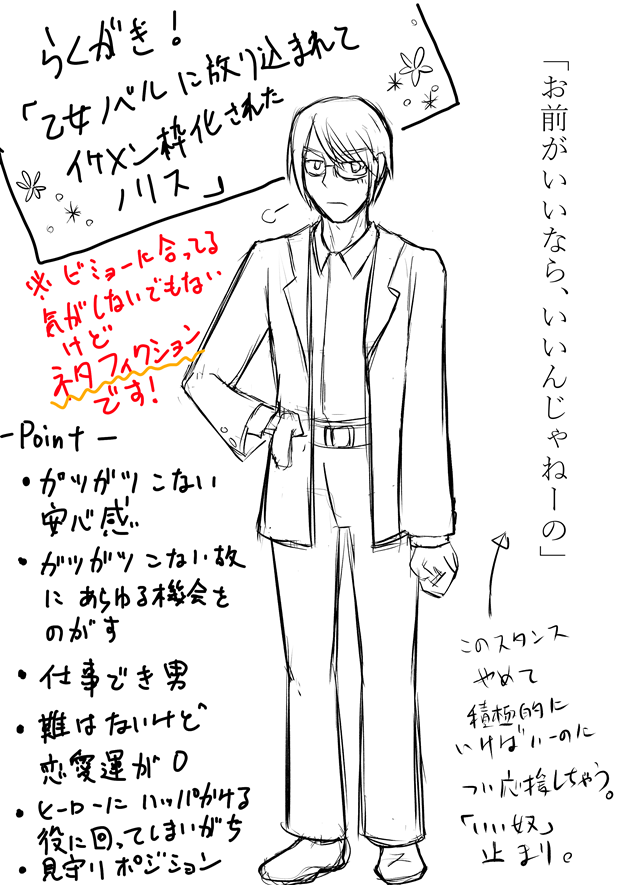 らくがき!
「乙女ノベルに放り込まれて
イケメン枠化された
ノリス」
※ビミョーに合ってる
気がしないでもない
けど
ネタフィクション
です!
「お前がいいなら、いいんじゃねーの」
-Point-
・ガツガツこない
安心感
・ガツガツこない故
にあらゆる機会を
のがす
・仕事でき男
・難はないけど
恋愛運が0
・ヒーローにハッパかける
役に回ってしまいがち
・見守りポジション
このスタンス
やめて
積極的に
いけばいーのに
つい応援しちゃう。
「いい奴」
止まり。